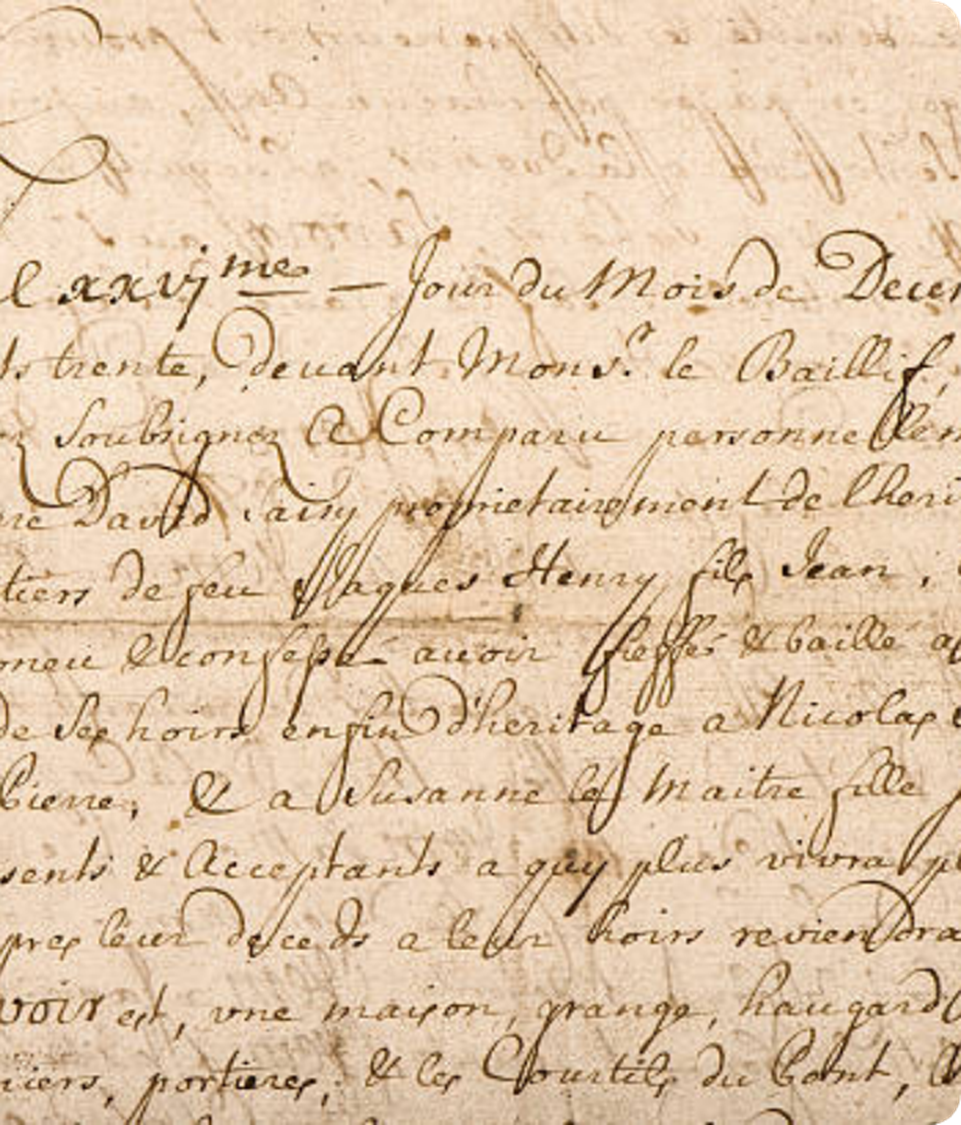 l xxvj me — Jour du Mois de Decem
ts trente, devant Mons.r le Baillif,
Soubsignez A Comparu personnellem
David propriétairement de lheri
tiers de feu Jaques Henry fils Jean,
oneu & confessé avoir fieffé & baillé a
de ses hoirs enfin d'heritage a Nicolas
Pierre, & a Susanne le Maitre fille
sents & Acceptants a quy plus vivra pl
pres leur deceds a leur hoirs reviendra
voir est, vne maison, grange, haugard
niers, portieres, & les Courtils du Pont,